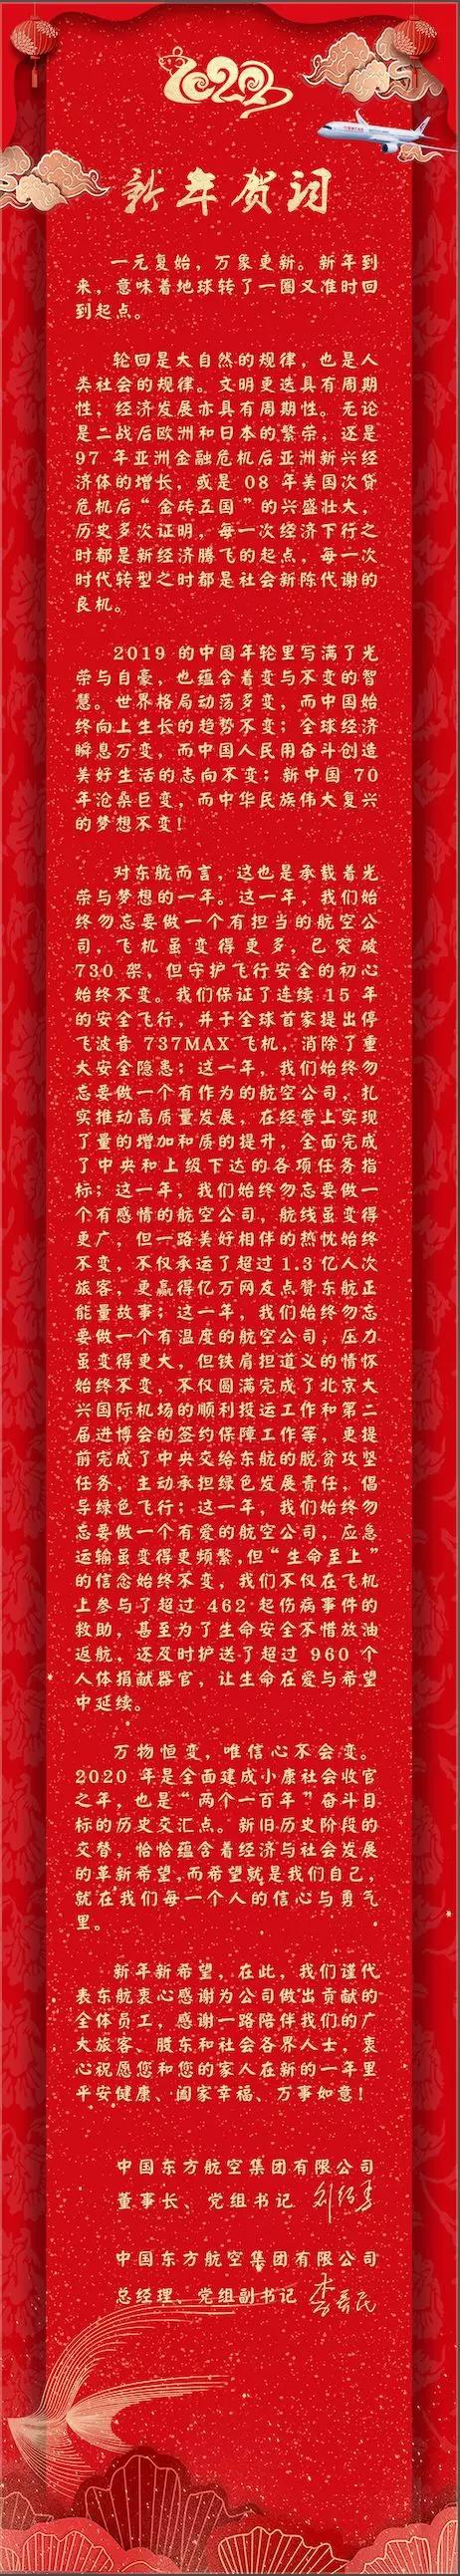 2020
新年贺词
一元复始，万象更新。新年到
来，意味着地球转了一圈又准时回
到起点。
轮回是大自然的规律，也是人
类社会的规律。文明更迭具有周期
性，经济发展亦具有周期性。无论
是二战后欧洲和日本的繁荣，还是
97 年亚洲金融危机后亚洲新兴经
济体的增长，或是 08 年美国次贷
危机后“金砖五国”的兴盛壮大，
历史多次证明，每一次经济下行之
时都是新经济腾飞的起点，每一次
时代转型之时都是社会新陈代谢的
良机。
2019 的中国年轮里写满了光
荣与自豪，也蕴含着变与不变的智
慧。世界格局动荡多变，而中国始
终向上生长的趋势不变；全球经济
瞬息万变，而中国人民用奋斗创造
美好生活的志向不变；新中国 70
年沧桑巨变，而中华民族伟大复兴
的梦想不变！
对东航而言，这也是承载着光
荣与梦想的一年。这一年，我们始
终勿忘要做一个有担当的航空公
司，飞机虽变得更多，已突破
730 架，但守护飞行安全的初心
始终不变。我们保证了连续 15 年
的安全飞行，并于全球首家提出停
飞波音 737MAX 飞机，消除了重
大安全隐患；这一年，我们始终勿
忘要做一个有作为的航空公司，扎
实推动高质量发展，在经营上实现
了量的增加和质的提升，全面完成
了中央和上级下达的各项任务指
标；这一年，我们始终勿忘要做一
个有感情的航空公司，航线虽变得
更广，但一路美好相伴的热忱始终
不变，不仅承运了超过 1.3 亿人次
旅客，更赢得亿万网友点赞东航正
能量故事；这一年，我们始终勿忘
要做一个有温度的航空公司，压力
虽变得更大，但铁肩担道义的情怀
始终不变，不仅圆满完成了北京大
兴国际机场的顺利投运工作和第二
届进博会的签约保障工作等，更提
前完成了中央交给东航的脱贫攻坚
任务，主动承担绿色发展责任，倡
导绿色飞行；这一年，我们始终勿
忘要做一个有爱的航空公司，应急
运输虽变得更频繁，但“生命至上”
的信念始终不变，我们不仅在飞机
上参与了超过 462 起伤病事件的
救助，甚至为了生命安全不惜放油
返航，还及时护送了超过 960 个
人体捐献器官，让生命在爱与希望
中延续。
万物恒变，唯信心不会变。
2020 年是全面建成小康社会收官
之年，也是“两个一百年”奋斗目
标的历史交汇点。新旧历史阶段的
交替，恰恰蕴含着经济与社会发展
的革新希望，而希望就是我们自己，
就在我们每一个人的信心与勇气
里。
新年新希望，在此，我们谨代
表东航衷心感谢为公司做出贡献的
全体员工，感谢一路陪伴我们的广
大旅客、股东和社会各界人士，衷
心祝愿您和您的家人在新的一年里
平安健康、阖家幸福、万事如意！
中国东方航空集团有限公司
董事长、党组书记 刘绍勇
中国东方航空集团有限公司
总经理、党组副书记 李养民